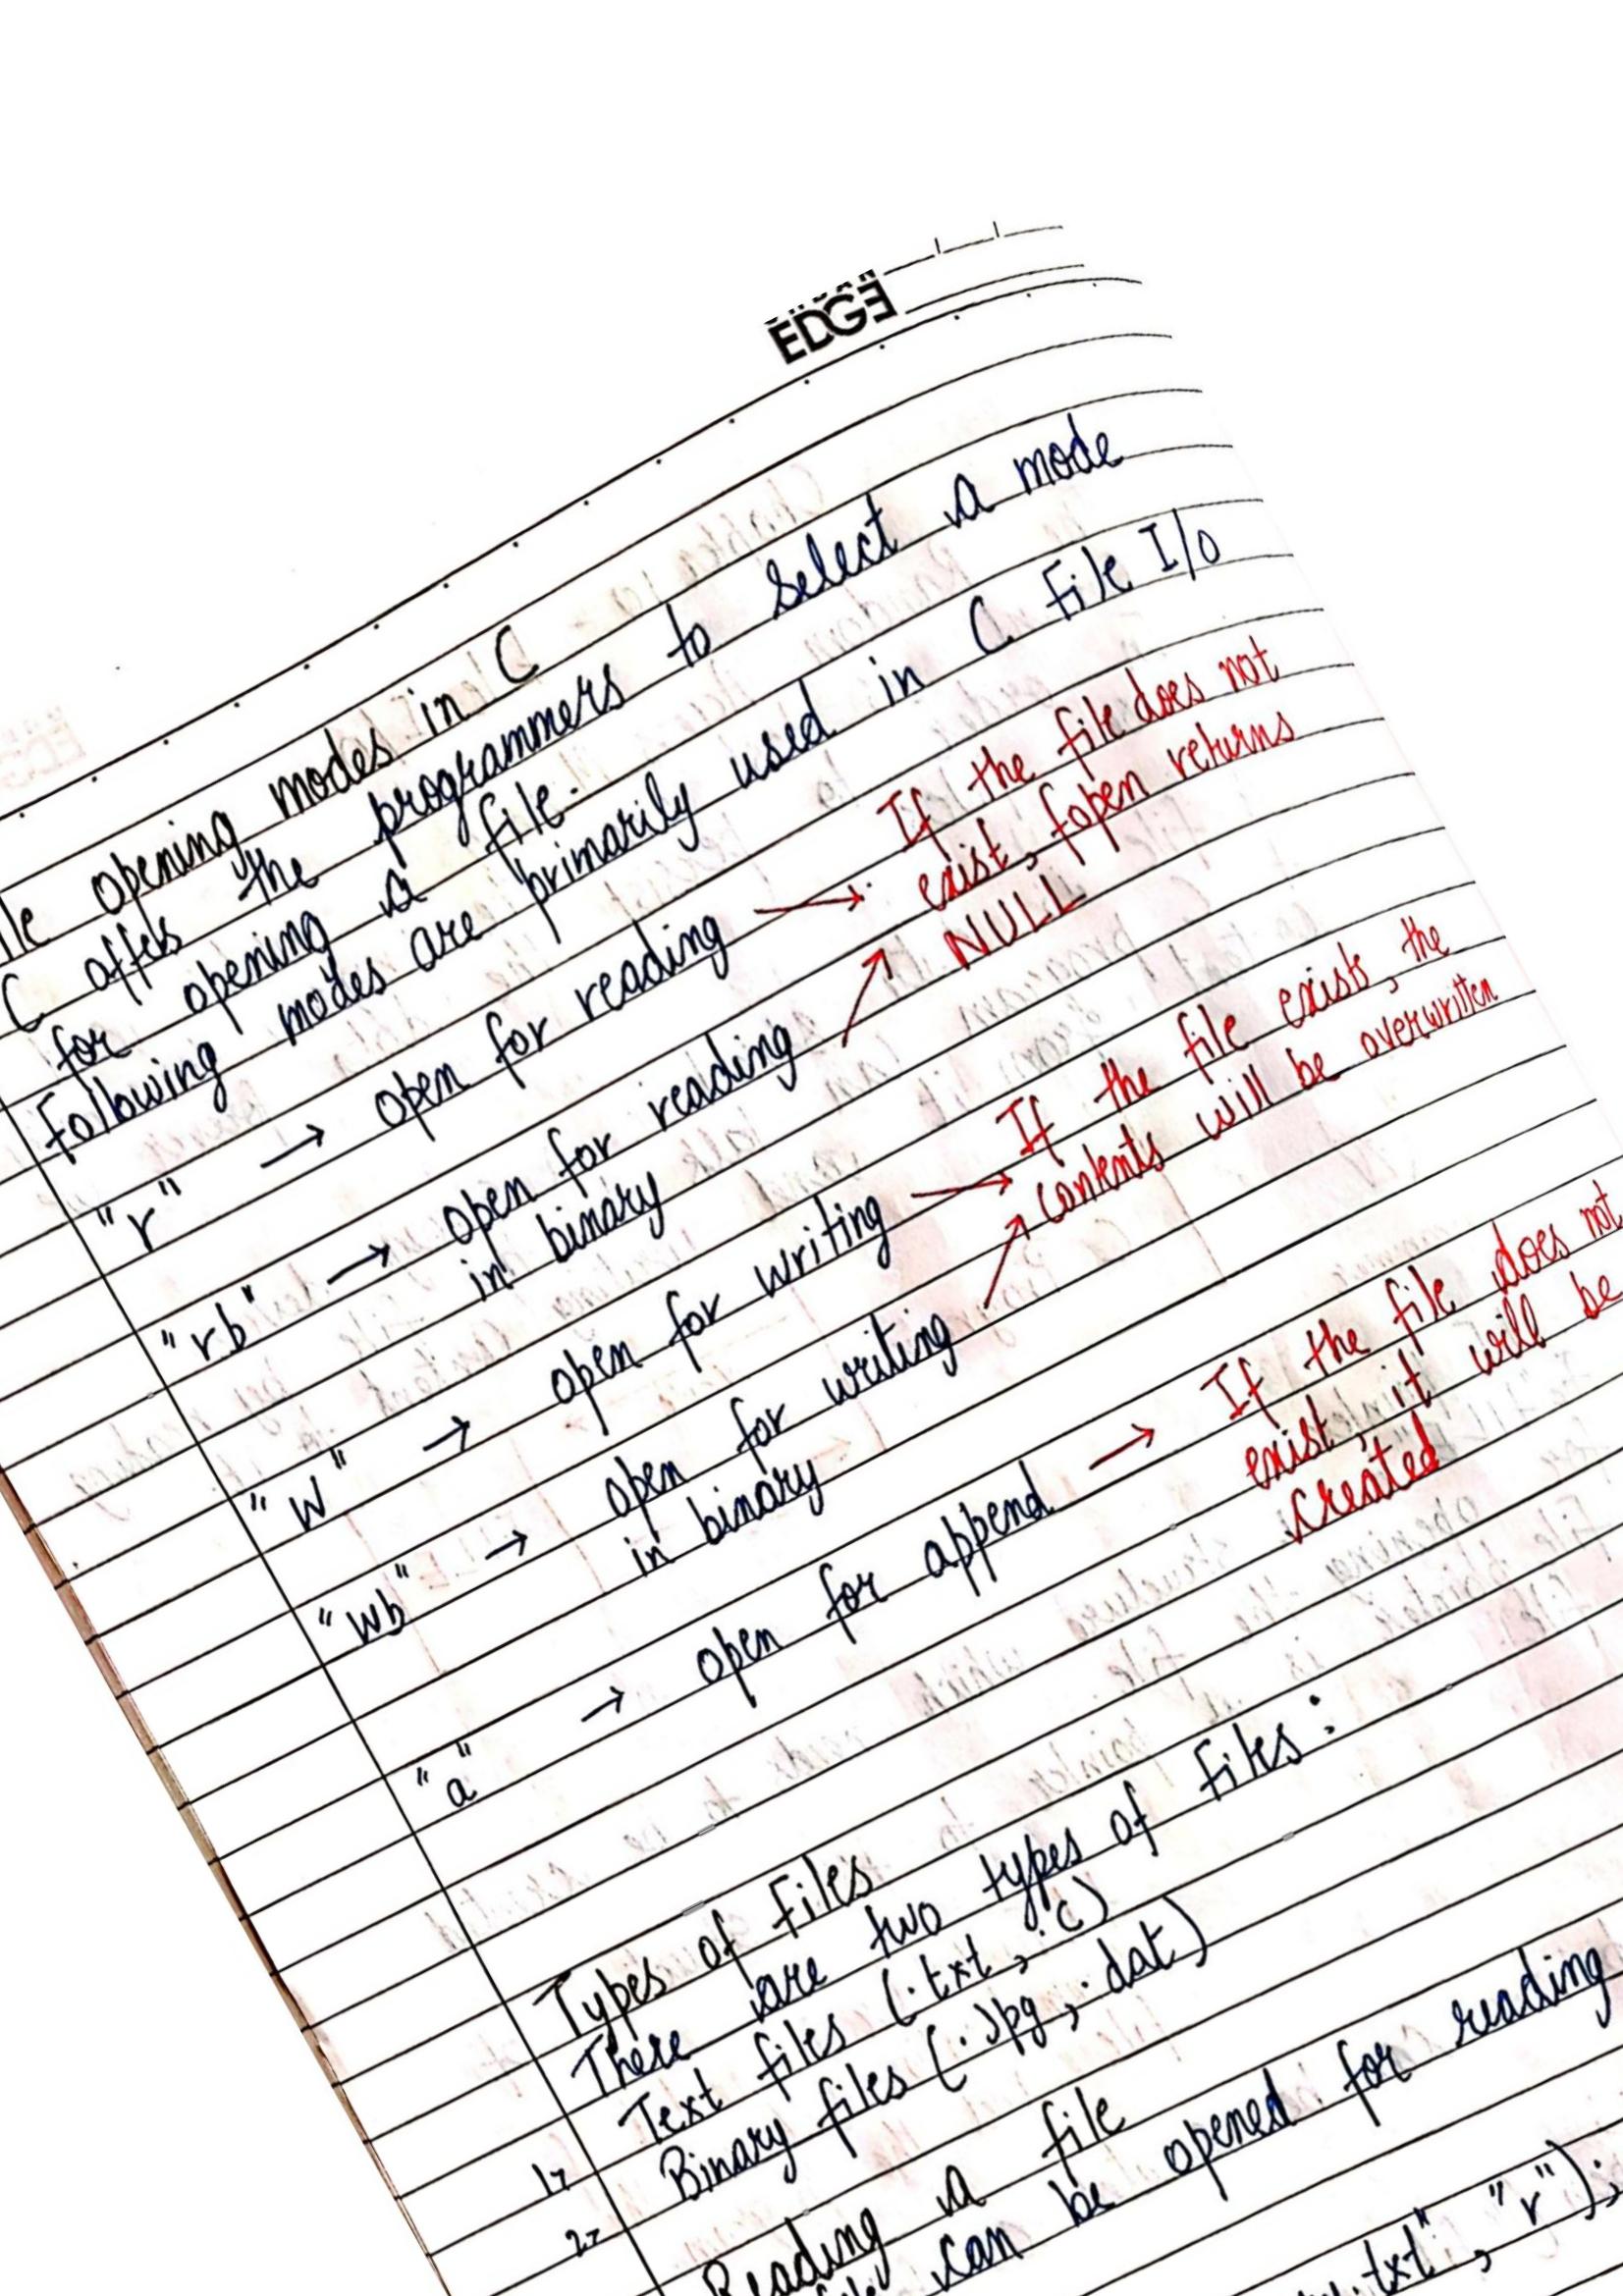 EDGE
le opening modes in C
C offers the programmers to select a mode
for opening a file.
Following modes are primarily used in C File I/O
"r" → open for reading → If the file does not
exist, fopen returns
NULL
"rb" → open for reading
in binary
"w" → open for writing → If the file exists, the
contents will be overwritten
"wb" → open for writing
in binary
"a" → open for append → If the file does not
exist, it will be
created
Types of Files
There are two types of files:
1→ Text files (.txt, .c)
2→ Binary files (.jpg, .dat)
Reading a file
can be opened for reading
.txt", "r");